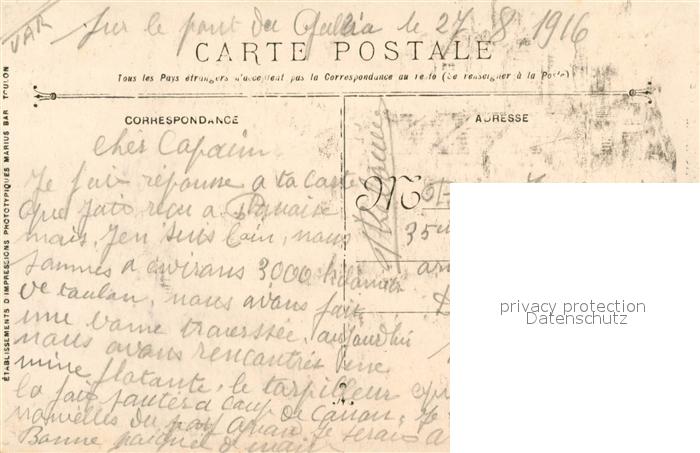 VAR
Sur le pont du Gallia le 27 8 1916
CARTE POSTALE
Tous les Pays étrangers n'acceptent pas la Correspondance au recto (Se renseigner à la Poste)
CORRESPONDANCE
Cher Copain
Je fait réponse a ta carte
que jait reçu a
mais Jen suis loin, nous
sommes a environs 3000 kilomètres
de toulon, nous avons fait
une bonne traverssée, aujourdhui
nous avons rencontrés une
mine flotante, le torpilleur
la fait sauter a coup de canon, Je
nouvelles du pay quand Je serais a
Bonne poignée d main
ADRESSE
M
35
privacy protection
Datenschutz
ÉTABLISSEMENTS D'IMPRESSIONS PHOTOTYPIQUES MARIUS BAR TOULON